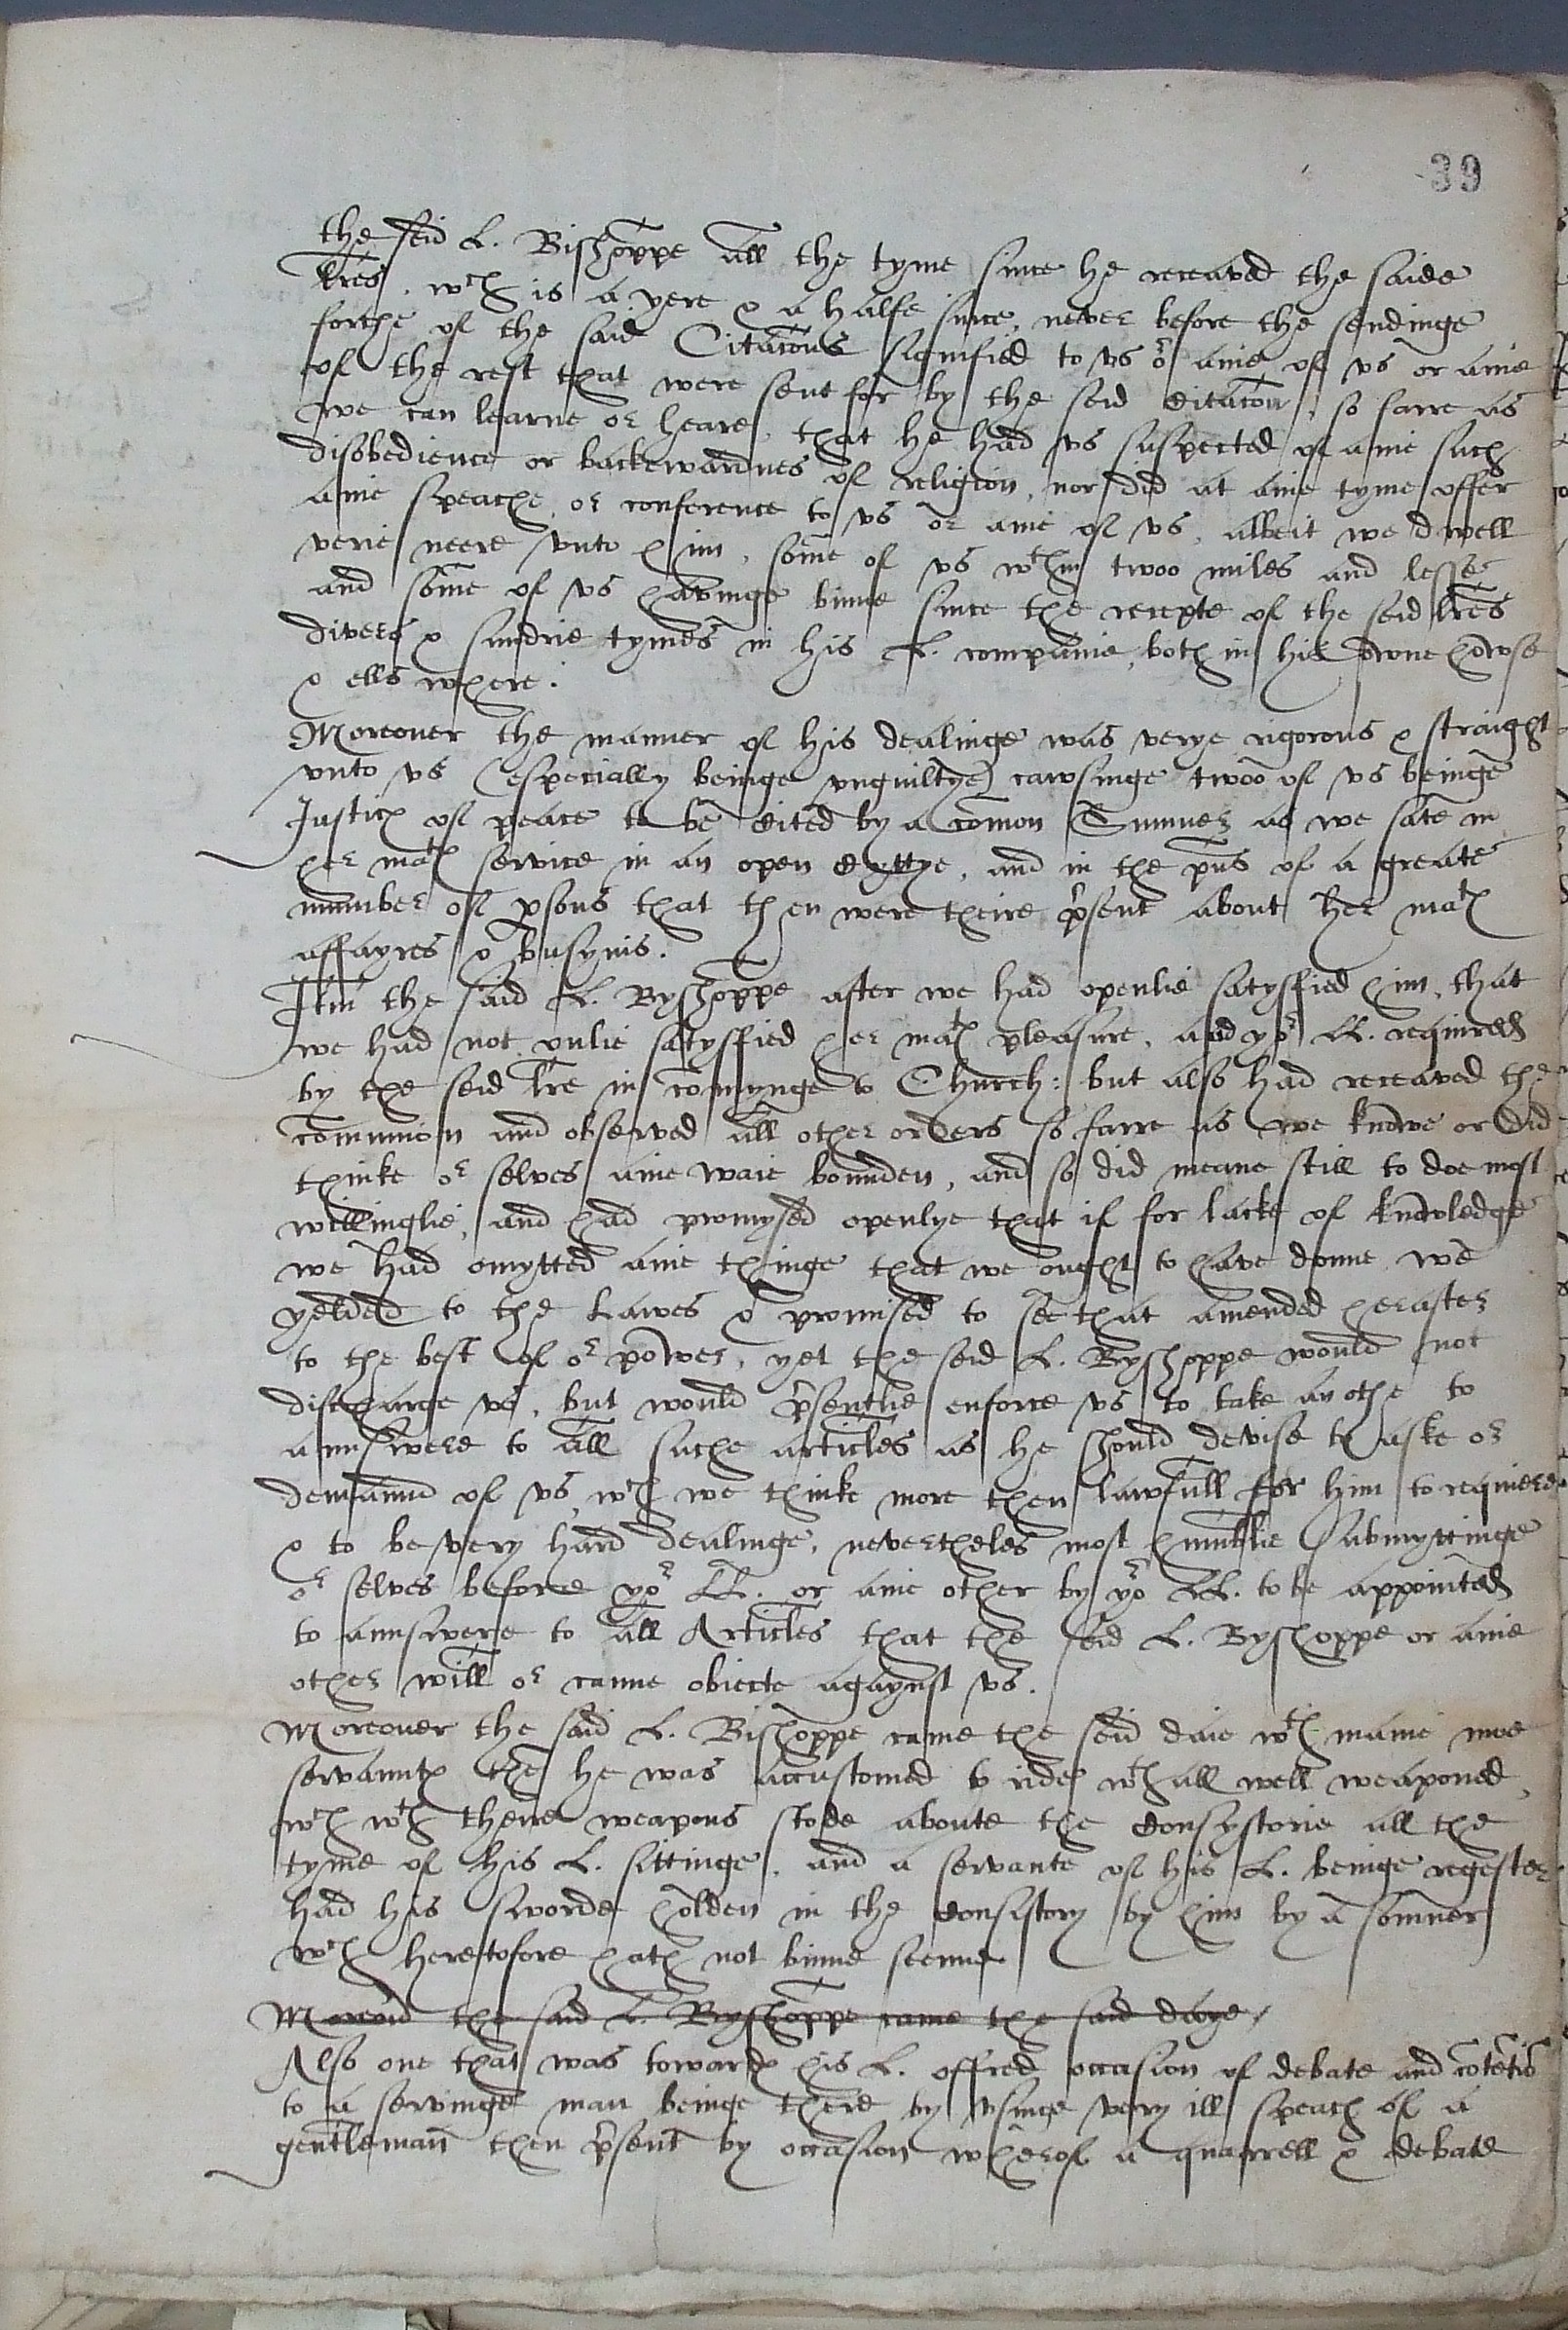 39
the seid L. Bishoppe all the tyme since he receaved the saide
lres, wch is a yere & a halfe since, never before the sendinge
forthe of the said Citacons signified to vs or anie of vs or anie
of the rest that were sent for by the seid citacon, so farre as
we can learne or heare, that he had vs suspected of anie such
disobedience or backewardnes of religion, nor did at anie tyme offer
anie speache or conference to vs or anie of vs, albeit we dwell
verie neere vnto him, some of vs wthin twoo miles and lesse
and some of vs havinge binne since the recepte of the seid lres
divers & sundrie tymes in his L. companie, both in his owne howse
& ells where.
Moreover the manner of his dealinge was verye rigorous & straight
vnto vs (especially beinge vnguiltye) cawsinge twoo of vs beinge
Justices of peace to be cited by a comon Sumner as we sate in
her mates service in an open cyttye, and in the pns of a greate
number of psons that then were theire psent about her mates
affayres & busynis.
Itm the said L. Byshoppe after we had openlie satysfied him, that
we had not onlie satysfied her mates pleasure, and yor LL. required
by the seid lre in comynge to Church: but also had receaved the
communion and observed all other orders so farre as we knowe or did
thinke or selves anie waie bounden, and so did meane still to doe most
willinglie, and had promysed openlye that if for lacke of knowledge
we had omytted anie thinge that we ought to have donne we
yelded to the Lawes & promised to see that amended herafter
to the best of or power, yet the seid L. Byshoppe would not
discharge vs, but would psentlie enforce vs to take an othe to
aunswere to all suche articles as he should devise to aske or
demaund of vs, wch we thinke more then lawfull for him to requiere
& to be very hard dealinge, nevertheles most humblie submyttinge
or selves before yor LL. or anie other by yor LL. to be appointed
to aunswere to all Articles that the seid L. Byshoppe or anie
other will or canne obiecte agaynst vs.
Moreover the said L. Bishoppe came the seid daie wth manie moe
servauntes then he was accustomed to ride wth all well weaponed,
wch wth theire weapons stode aboute the consystorie all the
tyme of his L. sittinge, and a servante of his L. beinge regester
had his sworde holden in the consistory by him by a somner
wch heretofore hath not binne seenne
the said L. Byshoppe came the said daye
Also one that was towardes his L. offred occasion of debate and cotetio
to a servinge man beinge there by vsinge very ill speach of a
gentleman then psent by occasion wherof a quarrell & debate